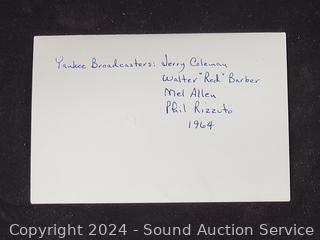 Yankee Broadcasters: Jerry Coleman
Walter "Red" Barber
Mel Allen
Phil Rizzuto
1964
Copyright © 2024 - Sound Auction Service